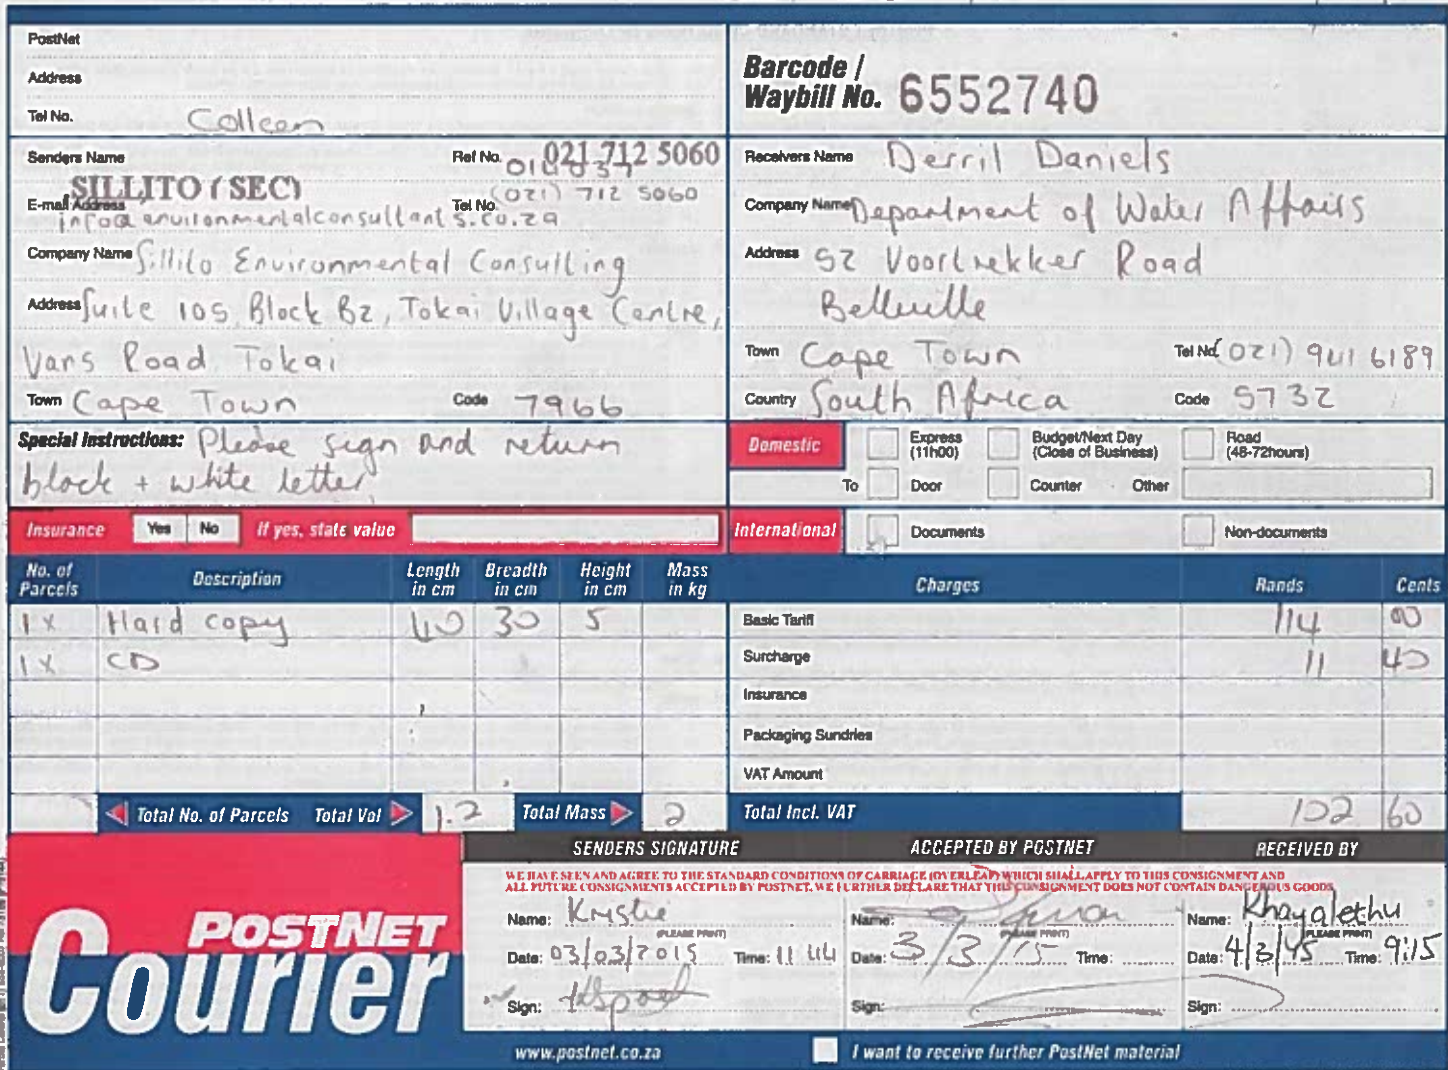 PostNet
Address
Tel No. Colleen
Barcode /
Waybill No. 6552740
Senders Name Ref No. 021 712 5060
SILLITO (SEC)
E-mail Address Tel No. (021) 712 5060
info@environmentalconsultants.co.za
Company Name Sillito Environmental Consulting
Address Suite 105, Block B2, Tokai Village Centre,
Vans Road Tokai
Town Cape Town Code 7966
Receivers Name Derril Daniels
Company Name Department of Water Affairs
Address 52 Voortrekker Road
Bellville
Town Cape Town Tel No. (021) 941 6189
Country South Africa Code 5732
Special Instructions: Please sign and return
black + white letter
Domestic Express (11h00) Budget/Next Day (Close of Business) Road (48-72hours)
To Door Counter Other
Insurance Yes No If yes, state value
International Documents Non-documents
No. of Parcels Description Length in cm Breadth in cm Height in cm Mass in kg
1 x Hard copy 40 30 5
1 x CD
Total No. of Parcels Total Vol 1.2 Total Mass 2
Charges Rands Cents
Basic Tariff 114 00
Surcharge 11 40
Insurance
Packaging Sundries
VAT Amount
Total Incl. VAT 122 60
POSTNET
Courier
SENDERS SIGNATURE ACCEPTED BY POSTNET RECEIVED BY
WE HAVE SEEN AND AGREE TO THE STANDARD CONDITIONS OF CARRIAGE (OVERLEAF) WHICH SHALL APPLY TO THIS CONSIGNMENT AND
ALL FUTURE CONSIGNMENTS ACCEPTED BY POSTNET. WE FURTHER DECLARE THAT THIS CONSIGNMENT DOES NOT CONTAIN DANGEROUS GOODS
Name: Kristie (PLEASE PRINT)
Date: 03/03/2015 Time: 11 44
Sign:
Name: (PLEASE PRINT)
Date: 3/3/15 Time:
Sign:
Name: Khayalethu (PLEASE PRINT)
Date: 4/3/15 Time: 9:15
Sign:
www.postnet.co.za
I want to receive further PostNet material